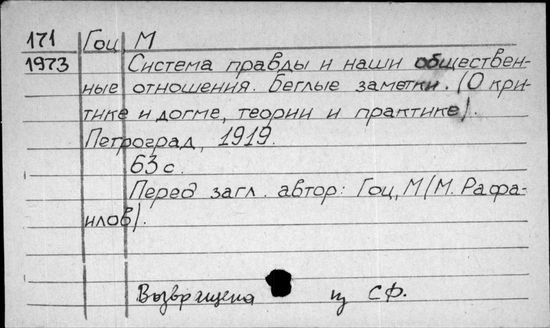 171 Гоц М
1973 Система правды и наши обществен-
ные отношения. Беглые заметки. (О кри-
тике и догме, теории и практике).
Петроград, 1919.
63 с.
Перед загл. автор: Гоц, М (М. Рафа-
илов).
Возвращена из СФ.